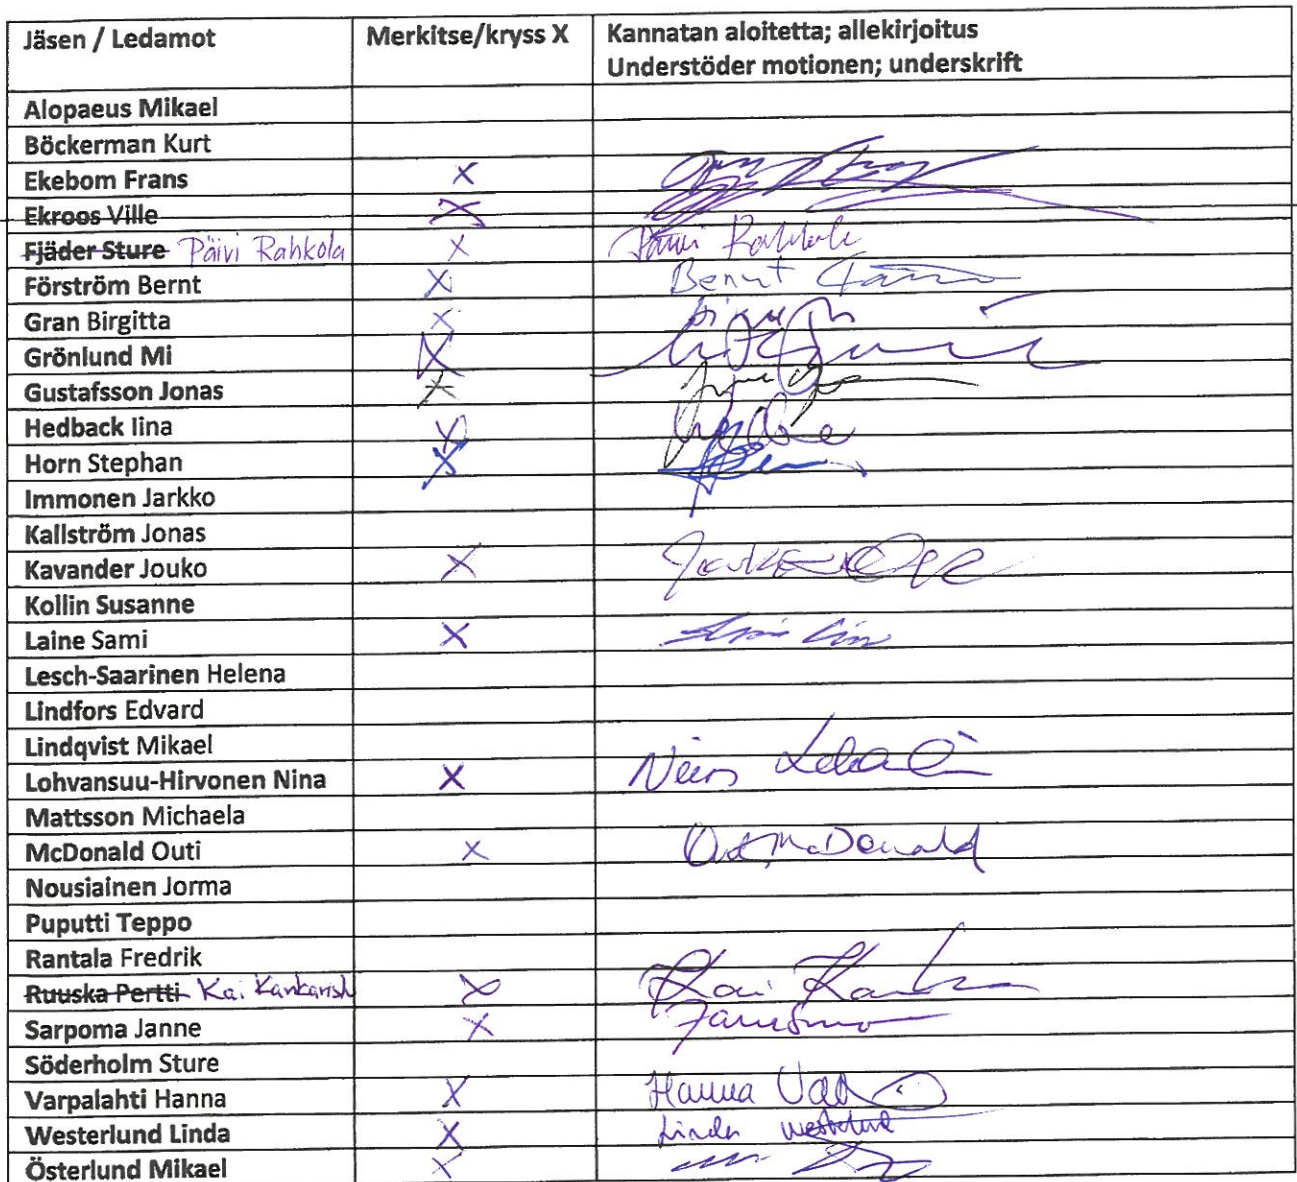 Jäsen / Ledamot Merkitse/kryss X Kannatan aloitetta; allekirjoitus
Understöder motionen; underskrift
Alopaeus Mikael
Böckerman Kurt
Ekebom Frans X
Ekroos Ville X
Fjäder Sture Päivi Rahkola X Päivi Rahkola
Förström Bernt X Bernt
Gran Birgitta X
Grönlund Mi X
Gustafsson Jonas X
Hedback Iina X
Horn Stephan X
Immonen Jarkko
Kallström Jonas
Kavander Jouko X
Kollin Susanne
Laine Sami X
Lesch-Saarinen Helena
Lindfors Edvard
Lindqvist Mikael
Lohvansuu-Hirvonen Nina X
Mattsson Michaela
McDonald Outi X Outi McDonald
Nousiainen Jorma
Puputti Teppo
Rantala Fredrik
Ruuska Pertti Kai X Kai
Sarpoma Janne X
Söderholm Sture
Varpalahti Hanna X Hanna
Westerlund Linda X Linda Westerlund
Österlund Mikael X